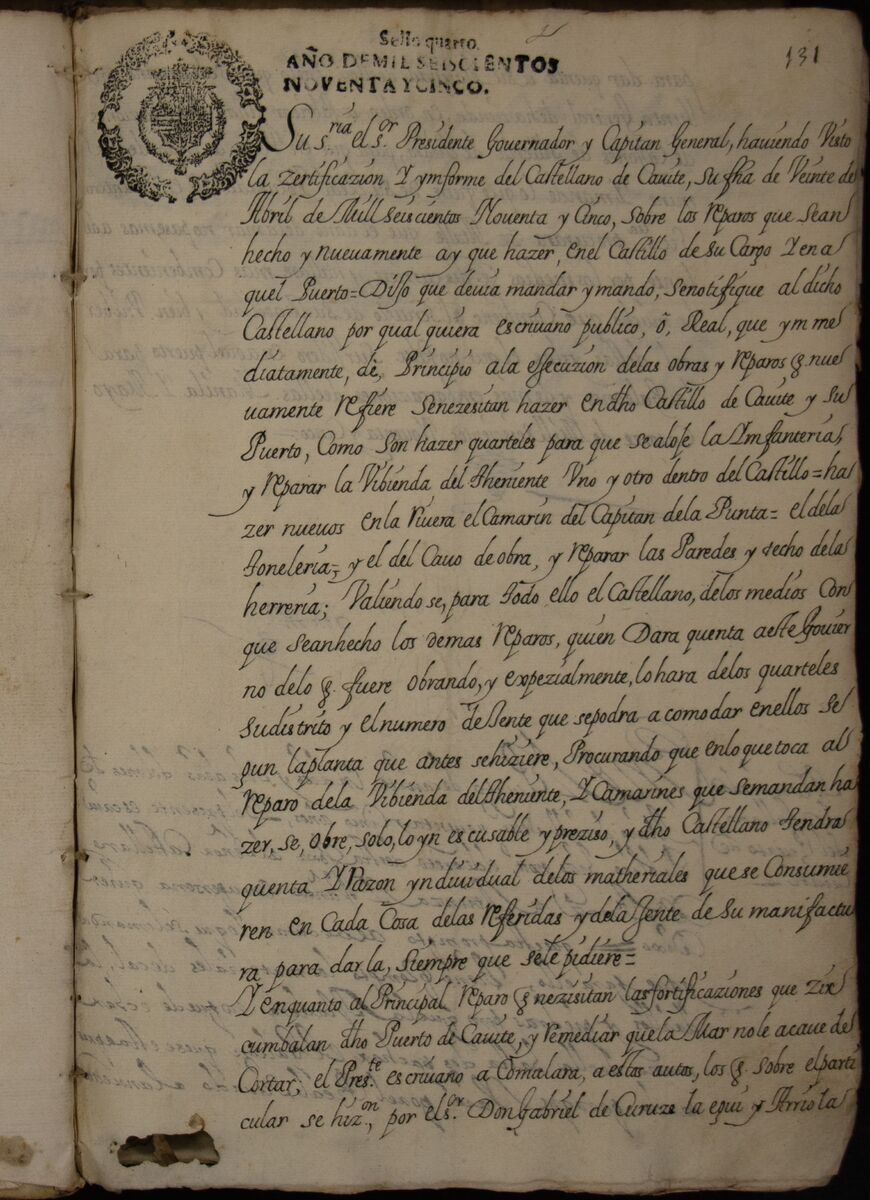 131
Sello quarto.
AÑO DE MIL SEISCIENTOS
NOVENTA Y CINCO.
Su s.ria el s.or Presidente Governador y Capitan General, haviendo Visto
la Zertificazion Y ynforme del Castellano de Cauite, Su fha de Veinte de
Abril de Mill Seiscientos Noventa y Cinco, sobre los reparos que Sean
hecho y nuevamente ay que hazer, en el Castillo de Su Cargo Y en a
quel Puerto = Dijo que deuia mandar y mando, Se notifique al dicho
Castellano por qual quiera escriuano publico, ô, Real, que ymme
diatamente, dè, Principio a la essecuzion de las obras y reparos q. nue
uamente refiere Se nezesitan hazer en dho Castillo de Cauite y Su
Puerto, Como son hazer quarteles para que se aloje la Ymfanteria,
y reparar la Vibienda del theniente Vno y otro dentro del Castillo = ha
zer nuevos en la riuera el Camarin del Capitan de la Punta = el de la
toneleria = y el del Cauo de obra, y reparar las Paredes y techo de la
herreria; Valiendo se, para todo ello el Castellano, de los medios Con
que Sean hecho los demas reparos, quien Dara quenta a este Gouier
no de lo q. fuere obrando, y expezialmente, lo hara de los quarteles
su distrito y el numero de Jente que se podra acomodar en ellos Se
gun la planta que antes se hiziere, Procurando que en lo que toca al
reparo de la Vibienda del theniente, Y Camarines que se mandan ha
zer, se, obre, solo, lo yn escusable y preziso, y dho Castellano tendra
quenta Y Razon yndiuidual de los matheriales que se Consumie
ren en Cada Cosa de las referidas y de la Jente de Su manifactu
ra para dar la, siempre que se le pidiere =
Y en quanto al Principal reparo q. nezisitan las fortificaziones que Zir
cumbalan dho Puerto de Cauite, y remediar que la Mar no le acaue de
Cortar; el Pres.te escriuano acomulara, a estos autos, los q. sobre el parti
cular se hiz.on, por el s.or Don Gabriel de Curuze la egui y Arriola